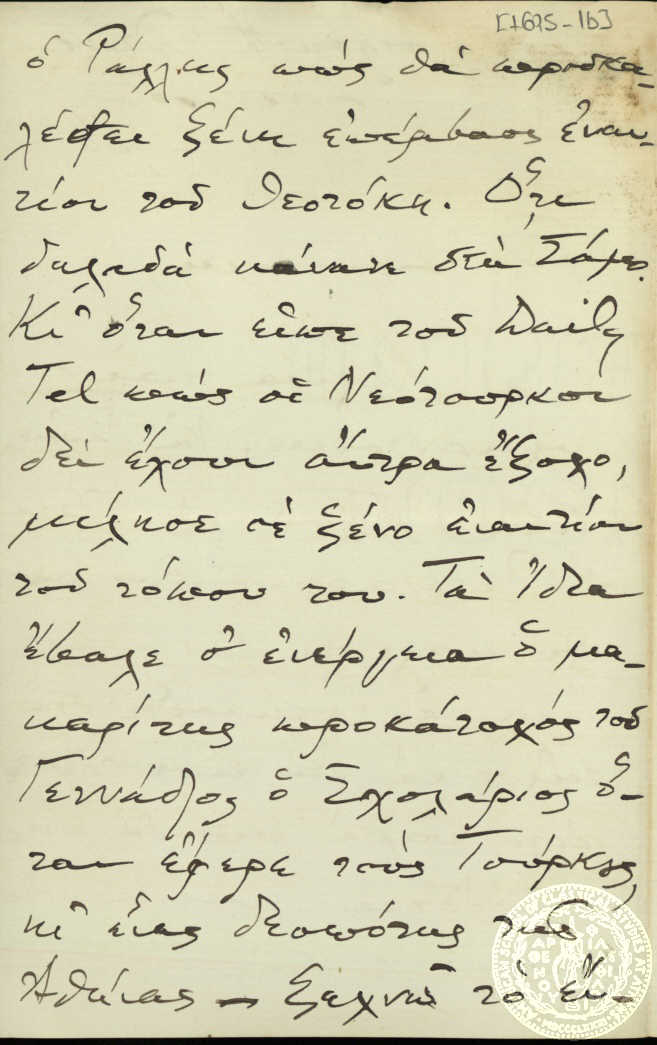 [1625-1b]
ὁ Ράλλης πώς θά προσκα-
λέσει ξένη ἐπέμβασις ἐναν-
τίον τοῦ Θεοτόκη. Ὅτι
δηλαδὰ κάνανε στὰ Σάμο.
Κι' ὅταν εἶπε τοῦ Daily
Tel πώς οἱ Νεότουρκοι
δὲν ἔχουν ἄντρα ἔξοχο,
μίλησε σὲ ξένο ἐναντίον
τοῦ τόπου του. Τὰ ἴδια
ἔβαλε σ' ἐνέργεια ὁ μα-
καρίτης προκάτοχός τοῦ
Γεννάδιος ὁ Σχολάριος ὅ-
ταν ἔφερε τοὺς Τούρκους,
κι' ἕνας δεσπότης τῆς
Ἀθήνας — ξεχνῶ τὸ